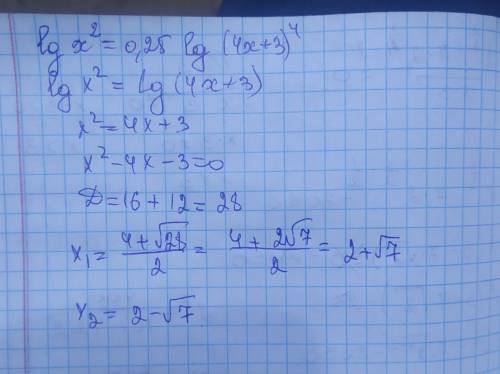 lg x² = 0,25 lg (4x+3)⁴
lg x² = lg (4x+3)
x² = 4x+3
x² - 4x - 3 = 0
D = 16 + 12 = 28
x₁ = (4+√28)/2 = (4+2√7)/2 = 2+√7
x₂ = 2-√7